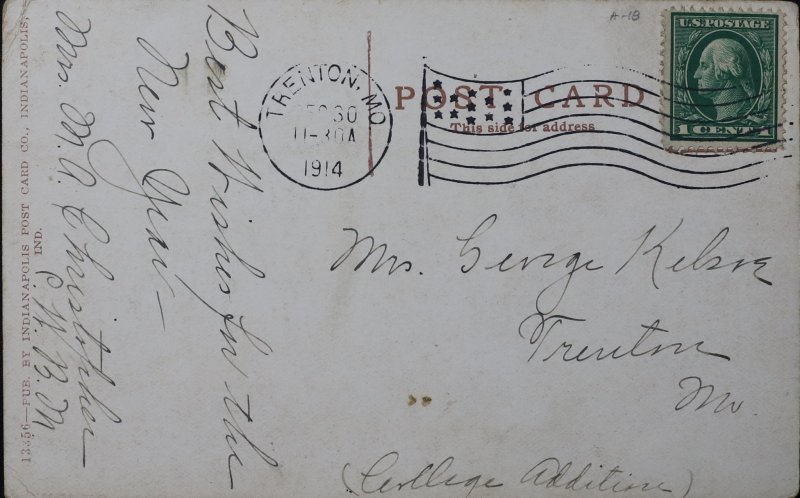 A-18
U.S. POSTAGE
1 CENT 1
TRENTON, MO.
DEC 30
11-30A
1914
POST CARD
This side for address
Best Wishes for the
New Year—
Mrs. M. A. Christopher
C. W. B. M
Mrs. George Kelso
Trenton
Mo.
(College Addition)
13356—PUB. BY INDIANAPOLIS POST CARD CO., INDIANAPOLIS,
IND.